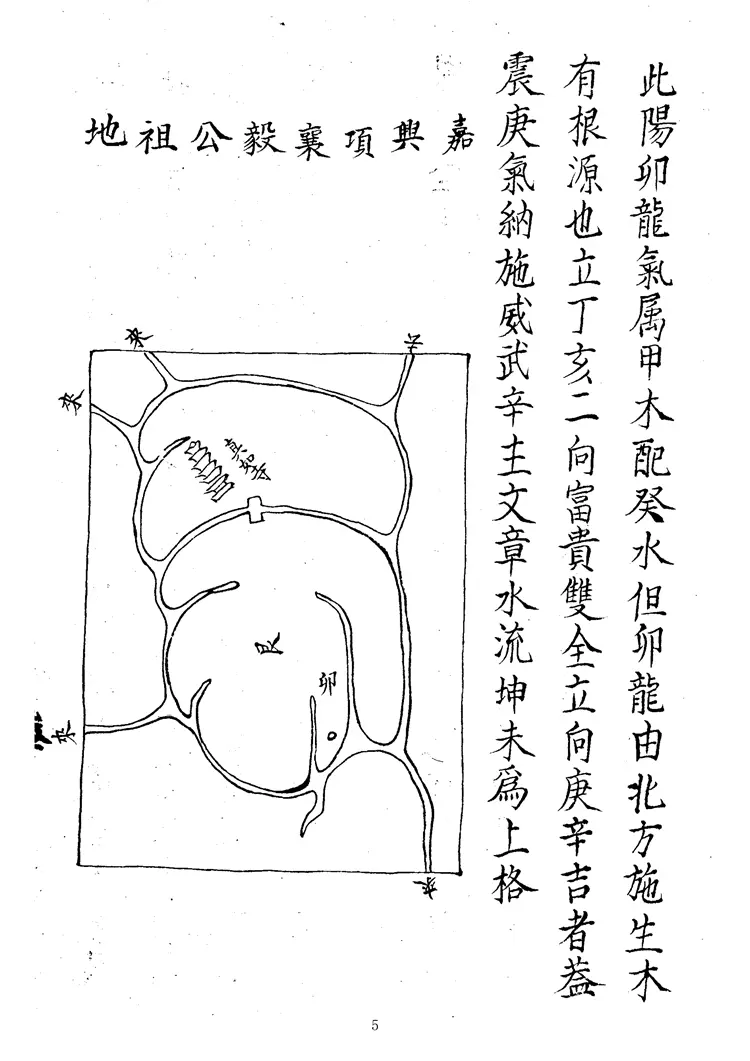 此陽卯龍氣属甲木配癸水但卯龍由北方施生木
有根源也立丁亥二向富貴雙全立向庚辛吉者蓋
震庚氣納施威武辛主文章水流坤未為上格
嘉興項襄毅公祖地
來
去
來
真如寺
艮
卯
來
來
5